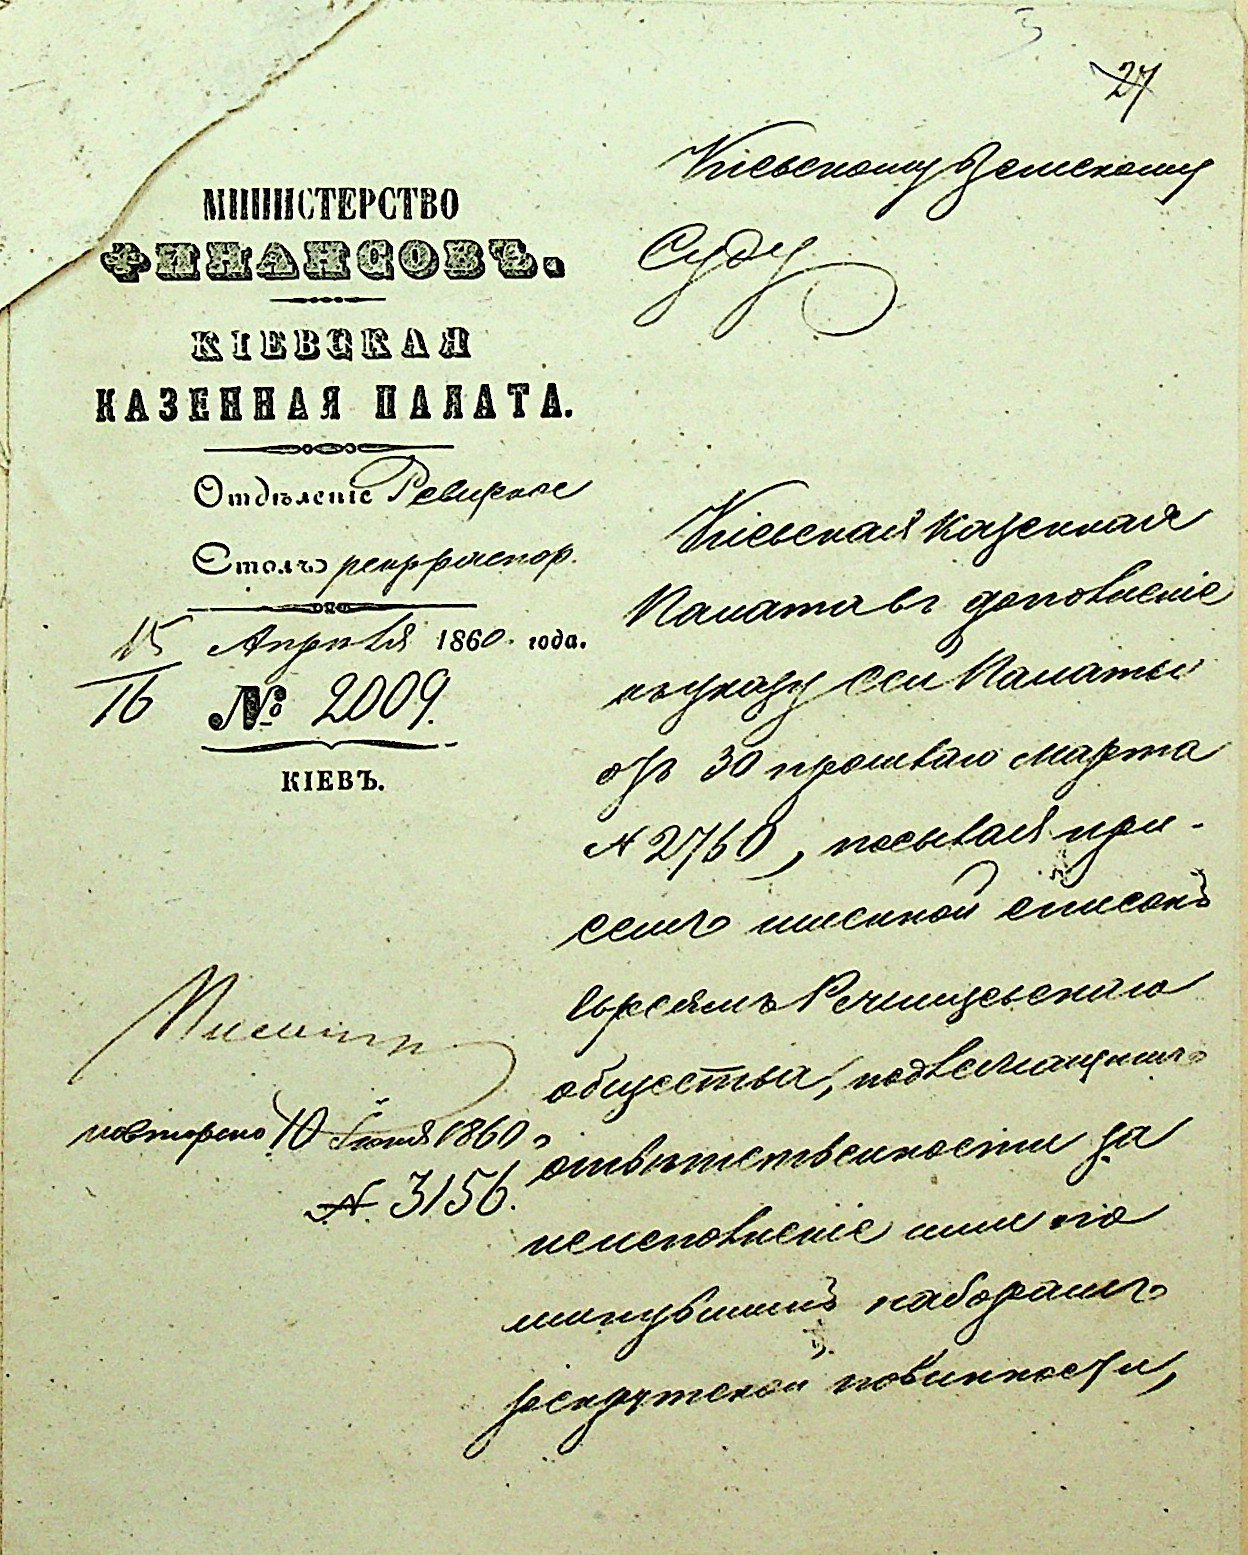 27
МИНИСТЕРСТВО
ФИНАНСОВЪ.
КІЕВСКАЯ
КАЗЕННАЯ ПАЛАТА.
Отдѣленіе Ревизкое
Столъ рекр распор.
15 Апрѣля 1860 года.
16 № 2009.
КІЕВЪ.
повторено 10 Іюня 1860
№ 3156.
Кіевскому Земскому
Суду
Кіевская казенная
Палата въ дополненіе
къ указу сей Палаты
отъ 30 прошлаго Марта
№ 2760, посылая при-
семъ именной списокъ
Евреямъ Ржищевскаго
общества, подлежащимъ
отвѣтственности за
неисполненіе ими по
минувшимъ наборамъ
рекрутской повинности,